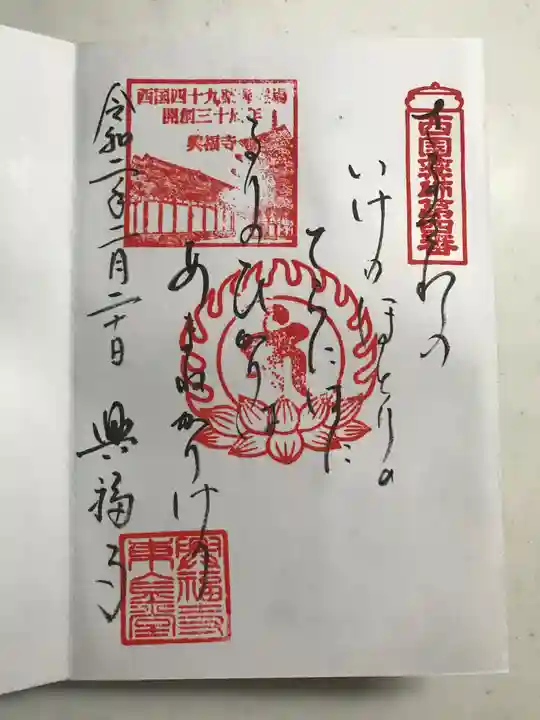 西国薬師第四番
さるさわの
いけのほとりの
てらにまた
るりのひかりは
あまねかりけり
西国四十九薬師霊場
開創三十周年
興福寺
令和二年二月二十日
興福寺
興福寺
東金堂